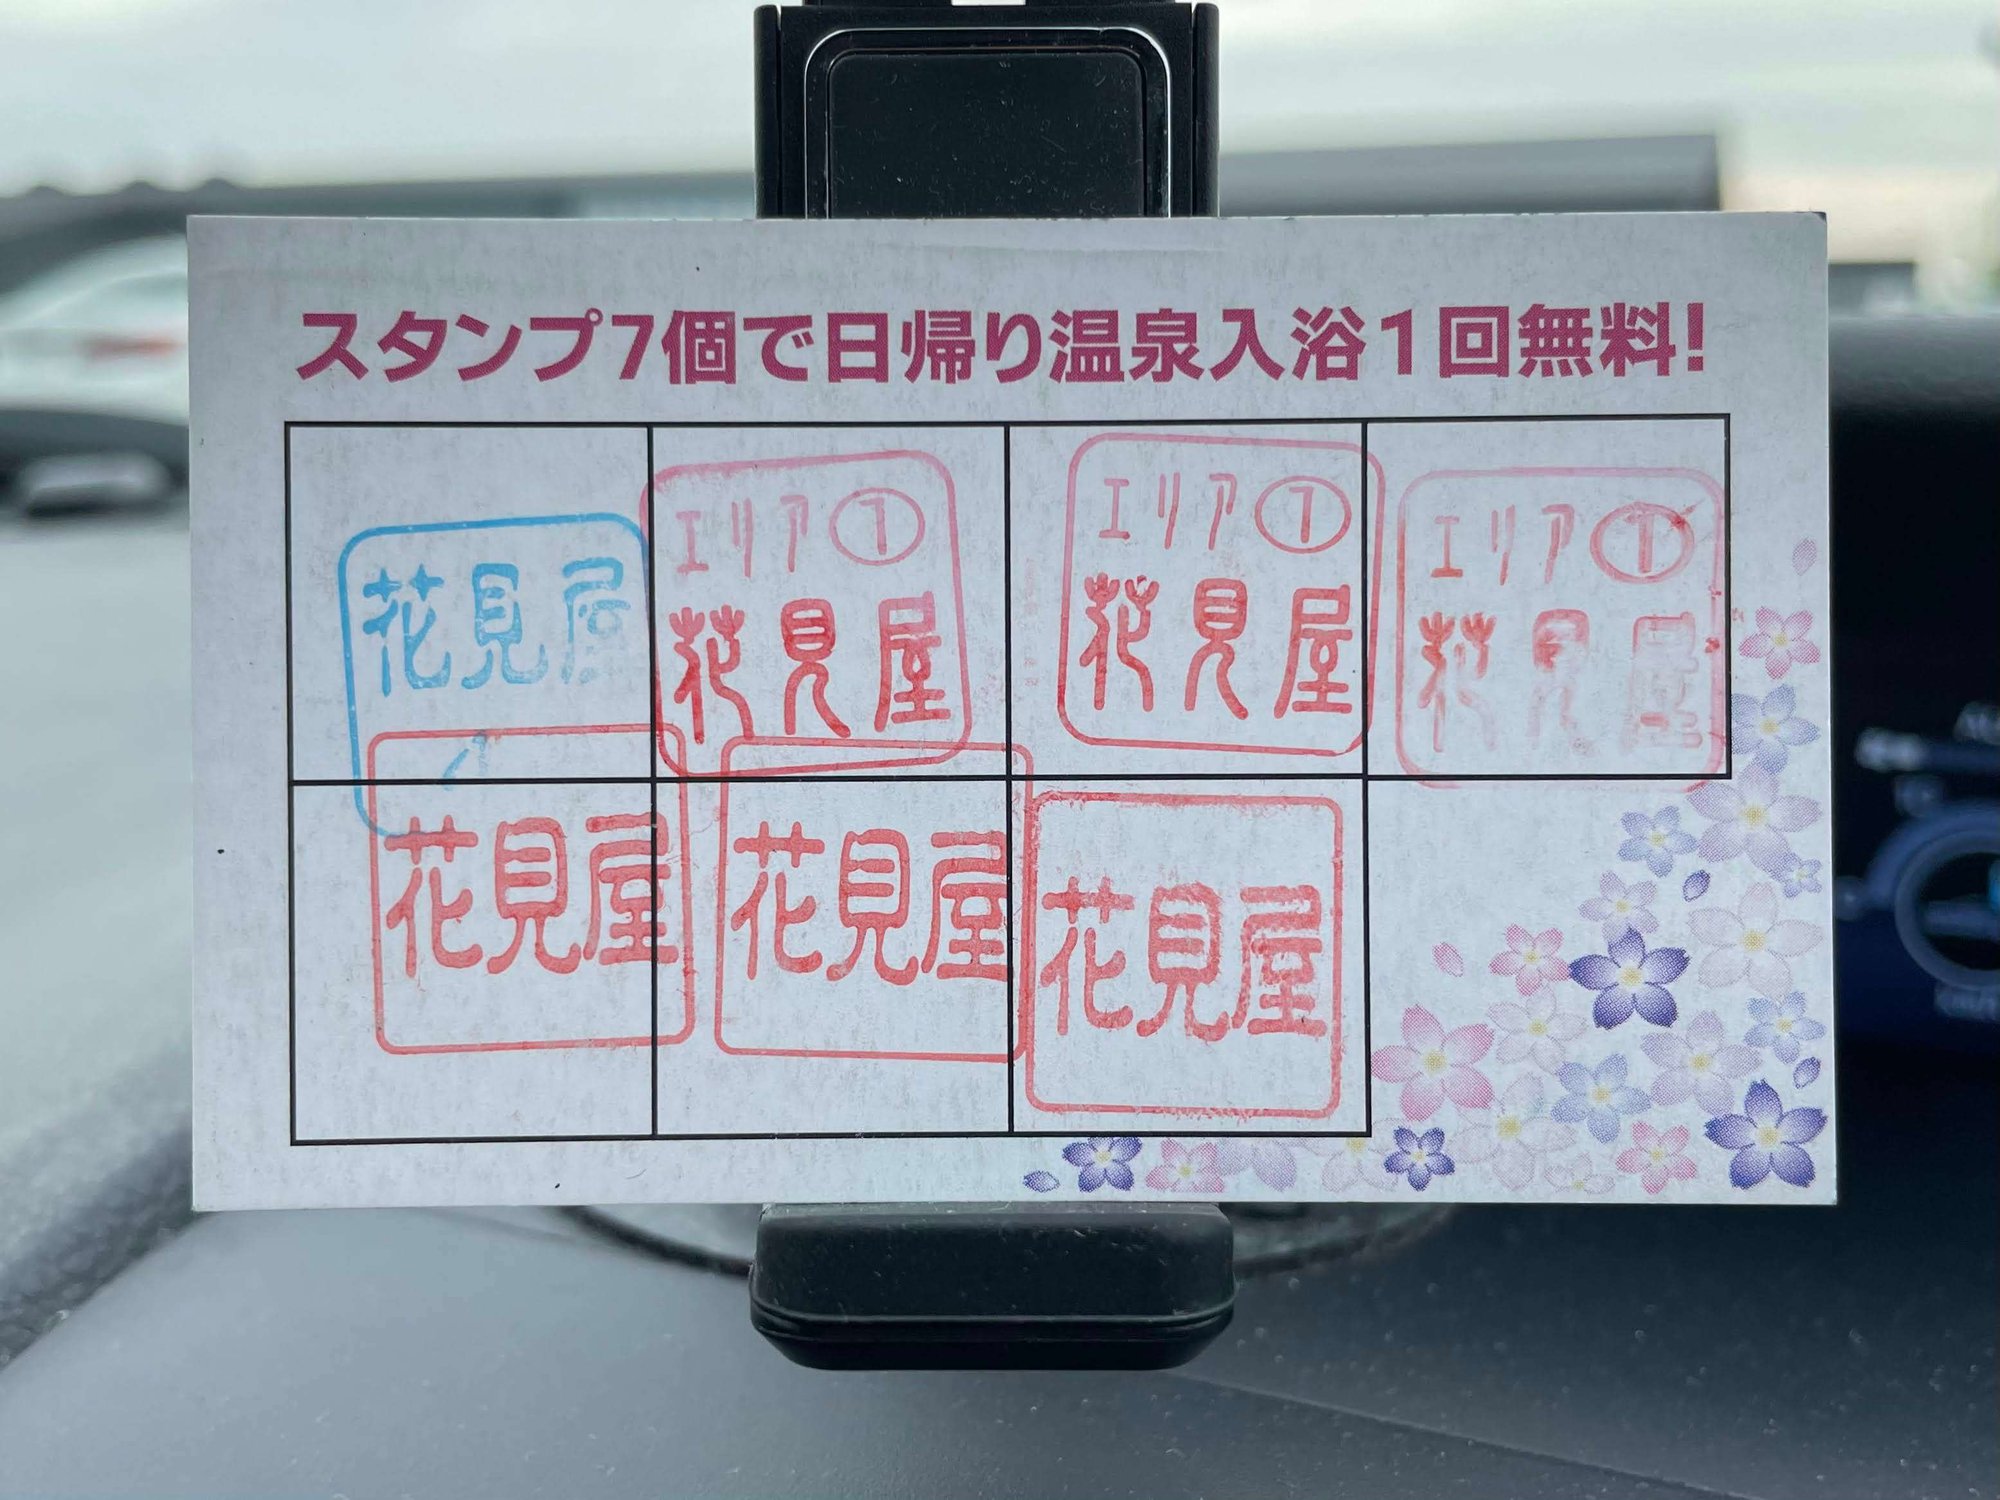 スタンプ7個で日帰り温泉入浴1回無料!
花見屋
エリア①
花見屋
エリア①
花見屋
エリア①
花見屋
花見屋
花見屋
花見屋